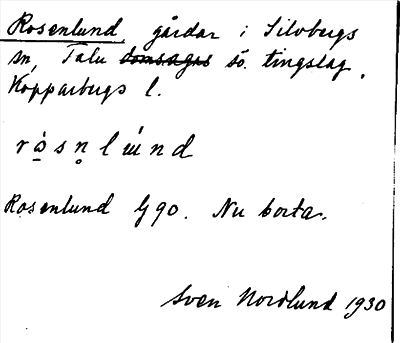 Rosenlund gårdar i Silvbergs
sn, Falu domsagas sö. tingslag,
Kopparbergs l.
rósn̥lúnd
Rosenlund G 90. Nu borta.
Sven Nordlund 1930